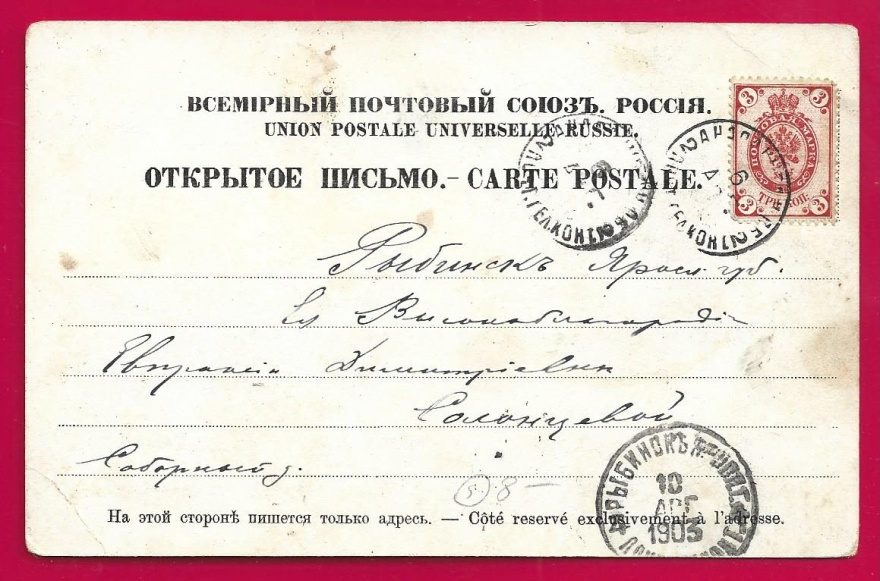 ВСЕМІРНЫЙ ПОЧТОВЫЙ СОЮЗЪ. РОССІЯ.
UNION POSTALE UNIVERSELLE RUSSIE.
ОТКРЫТОЕ ПИСЬМО. – CARTE POSTALE.
3 3
ПОЧТОВАЯ МАРКА
ТРИ КОП.
3 3
Рыбинскъ Яросл. губ.
Ея Высокоблагородію
Евпраксіи Димитріевнѣ
Солонцевой
Соборный д.
5 8 –
РЫБИНСКЪ
10
АВГ
1905
На этой сторонѣ пишется только адресъ. — Côté reservé exclusivement à l'adresse.